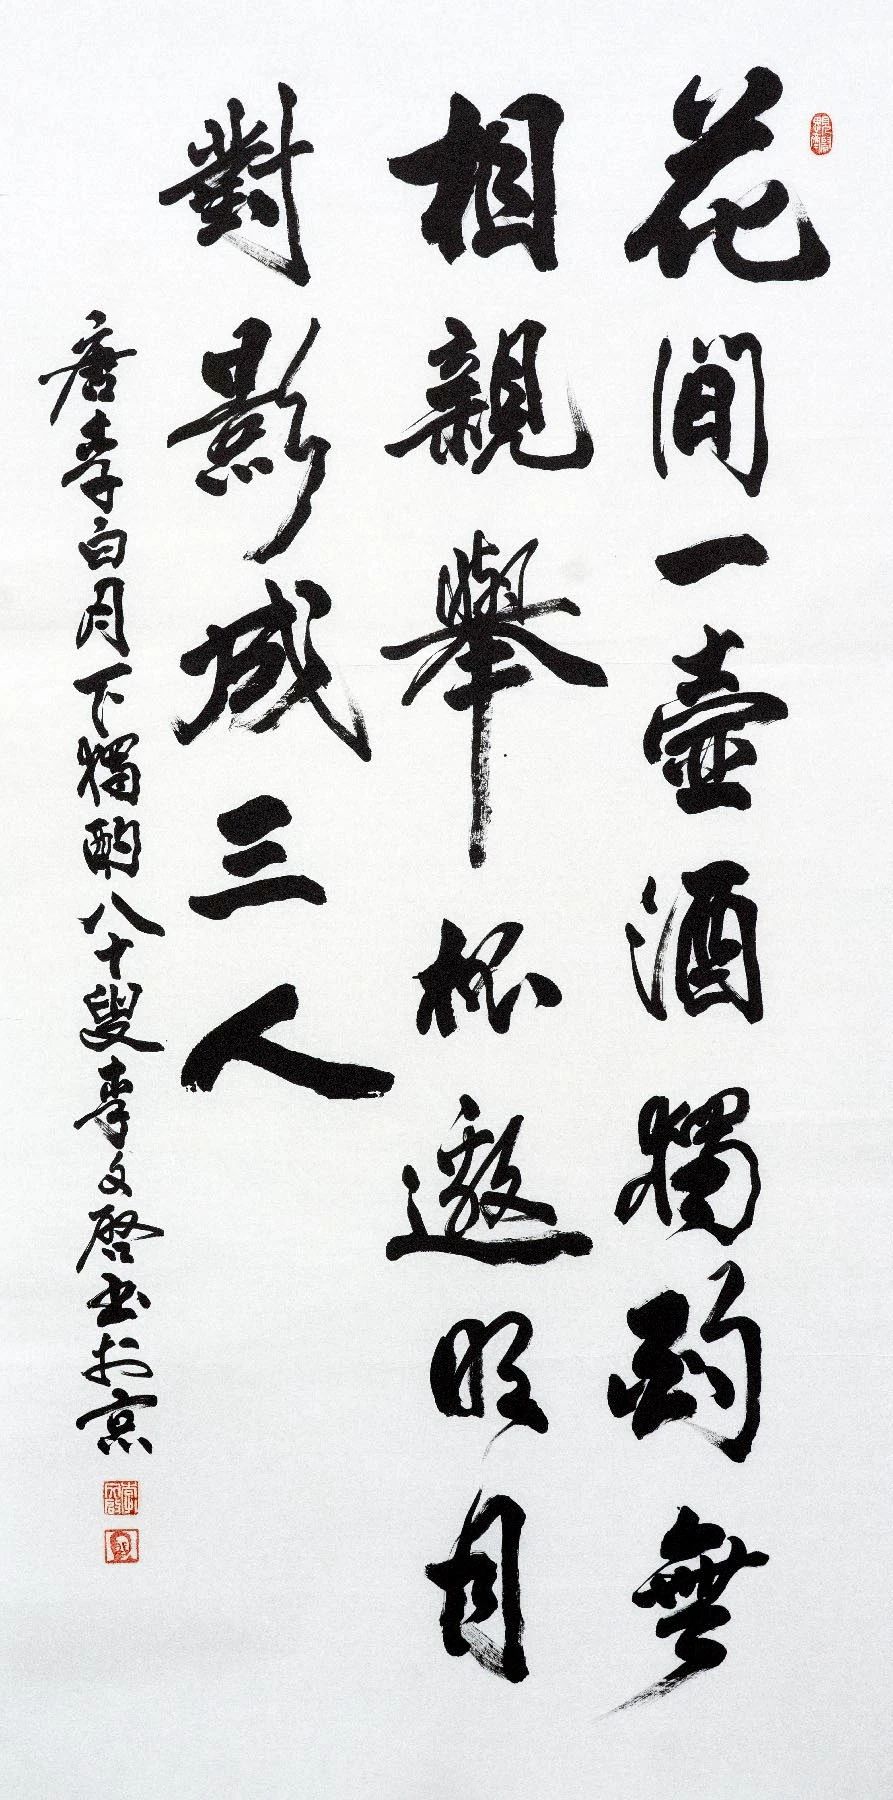 花間一壺酒獨酌無
相親舉杯邀明月
對影成三人
唐李白月下獨酌八十叟李文啓书於京
李文啓